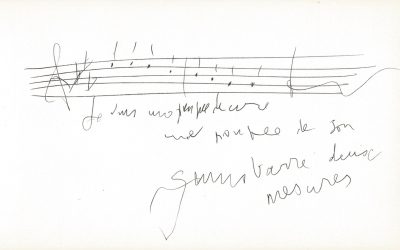 Je suis une poupée de cire
une poupée de son
Gainsbarre deux
mesures